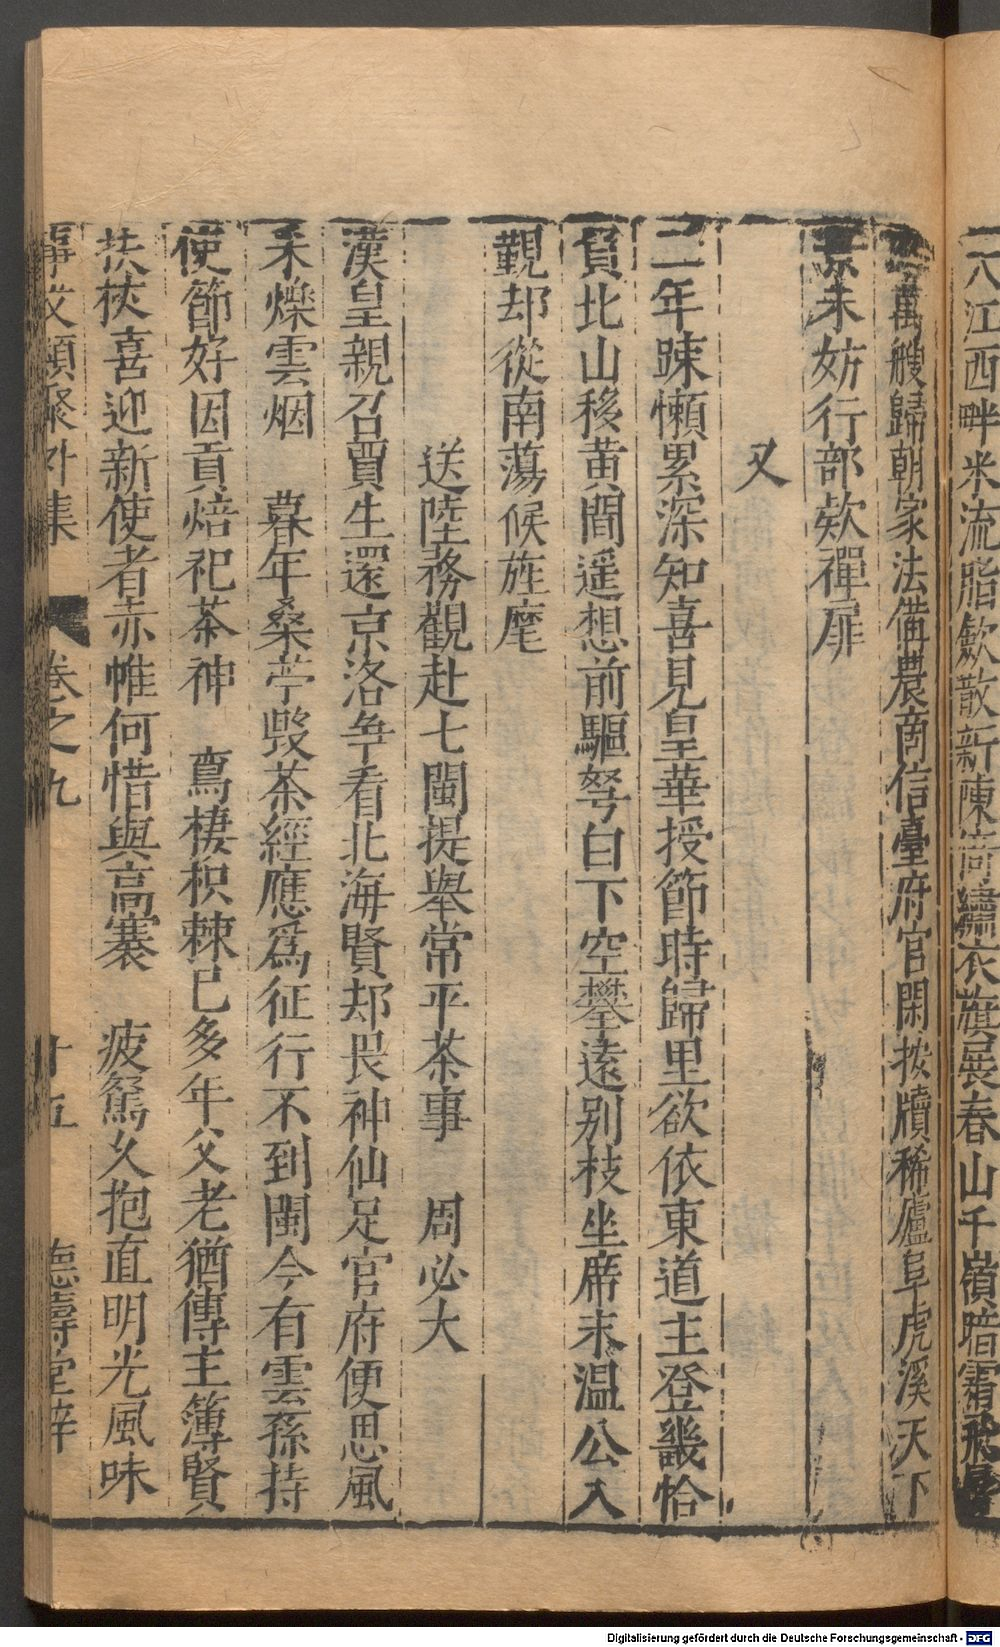 八江西畔米流脂歛散新陳
繡衣旗展春山千嶺暗霜飛
萬艘歸朝家法備農商信臺府官閑按牘稀廬阜虎溪天下
未妨行部欵禪扉
又
二年踈懶累深知喜見皇華授節時歸里欲依東道主登畿恰
負北山移黄間遥想前驅弩白下空攀遠别枝坐席未温公入
覲却從南蕩候旌麾
送陸務觀赴七閩提舉常平茶事 周必大
漢皇親召賈生還京洛争看北海賢却畏神仙足官府便思風
未爍雲烟 暮年桑苧毁茶經應爲征行不到閩今有雲孫持
使節好因貢焙祀茶神 鸞棲枳棘已多年父老猶傳主簿賢
扶杖喜迎新使者赤帷何惜與高褰 疲駑久抱直明光風味
事文類聚外集 卷之九 十五 德壽堂梓
Digitalisierung gefördert durch die Deutsche Forschungsgemeinschaft - DFG